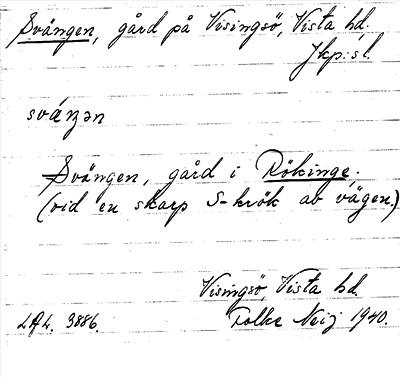 Svängen, gård på Visingsö, Vista hd.
Jkp:s l.
sváŋən
Svängen, gård i Rökinge.
(vid en skarp S-krök av vägen.)
Visingsö, Vista hd.
LAL. 3886. Folke Neij 1940.